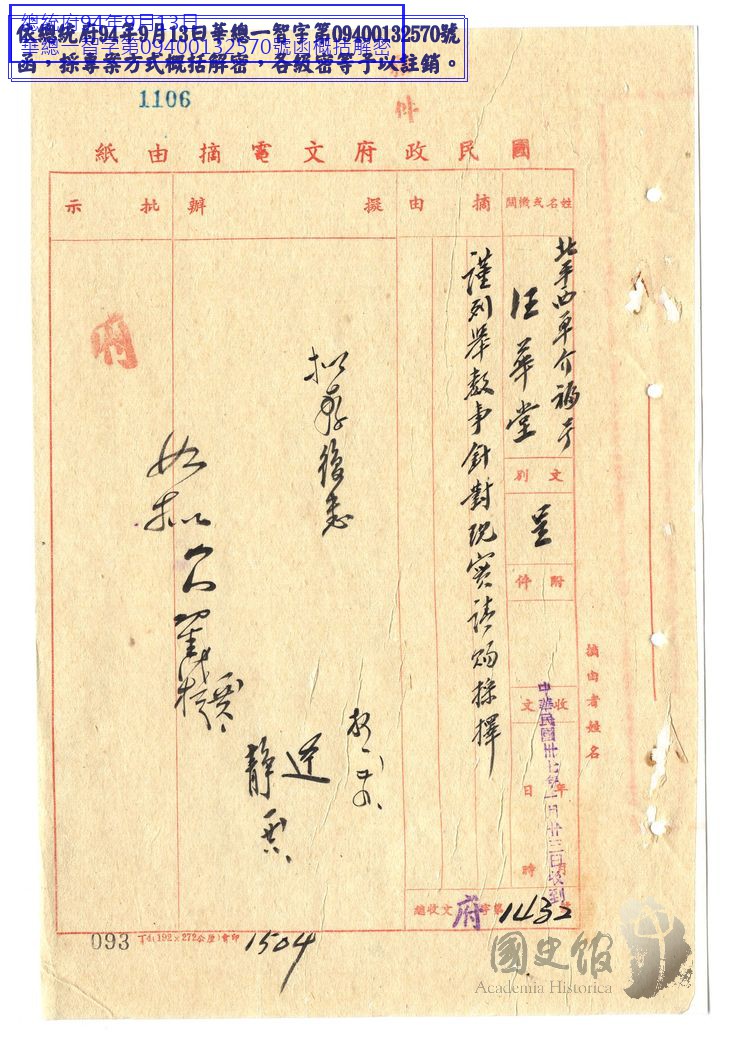 總統府94年9月13日
華總一智字第09400132570號函概括解密
依總統府94年9月13日華總一智字第09400132570號
函，採專案方式概括解密，各級密等予以註銷。
1106
件
國民政府文電摘由紙
姓名或機關
摘由
擬辦
批示
北平西單介福
汪華堂
文別
呈
附件
收文
年
日
時
中華民國卅七年一月廿三日收到
謹列舉數事針對現實請賜採擇
擬存後悉
如擬
靜
府
摘由者姓名
總收文府字第1432
093
丁4(192×272公厘)會印
1504
國史館
Academia Historica